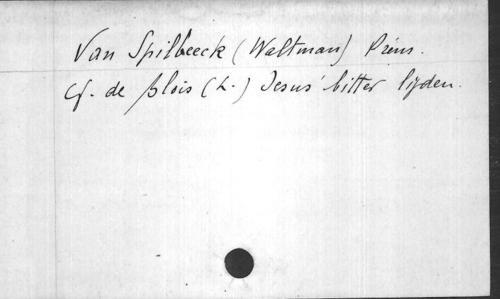 Van Spilbeeck (Waltman) Prém.
Cf. de Blois (L.) Jesus' bitter lijden.